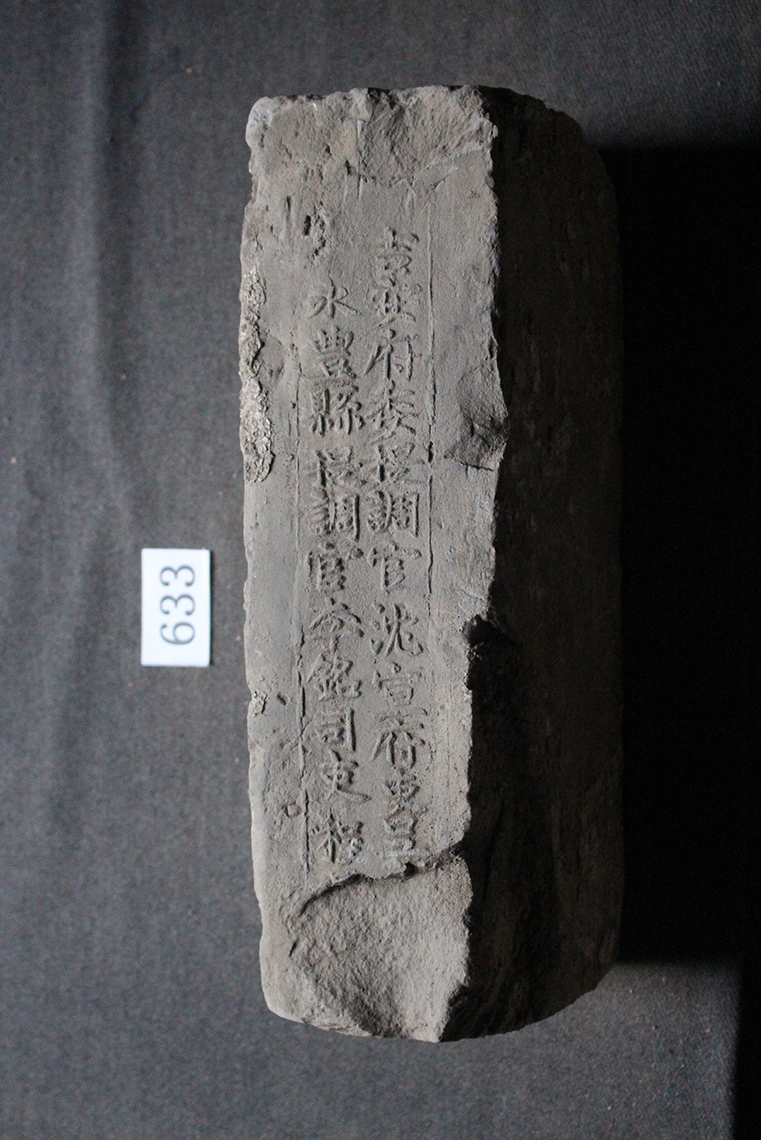 吉安府委提調官沈宣府吏
永豊縣提調官李銘司吏
633